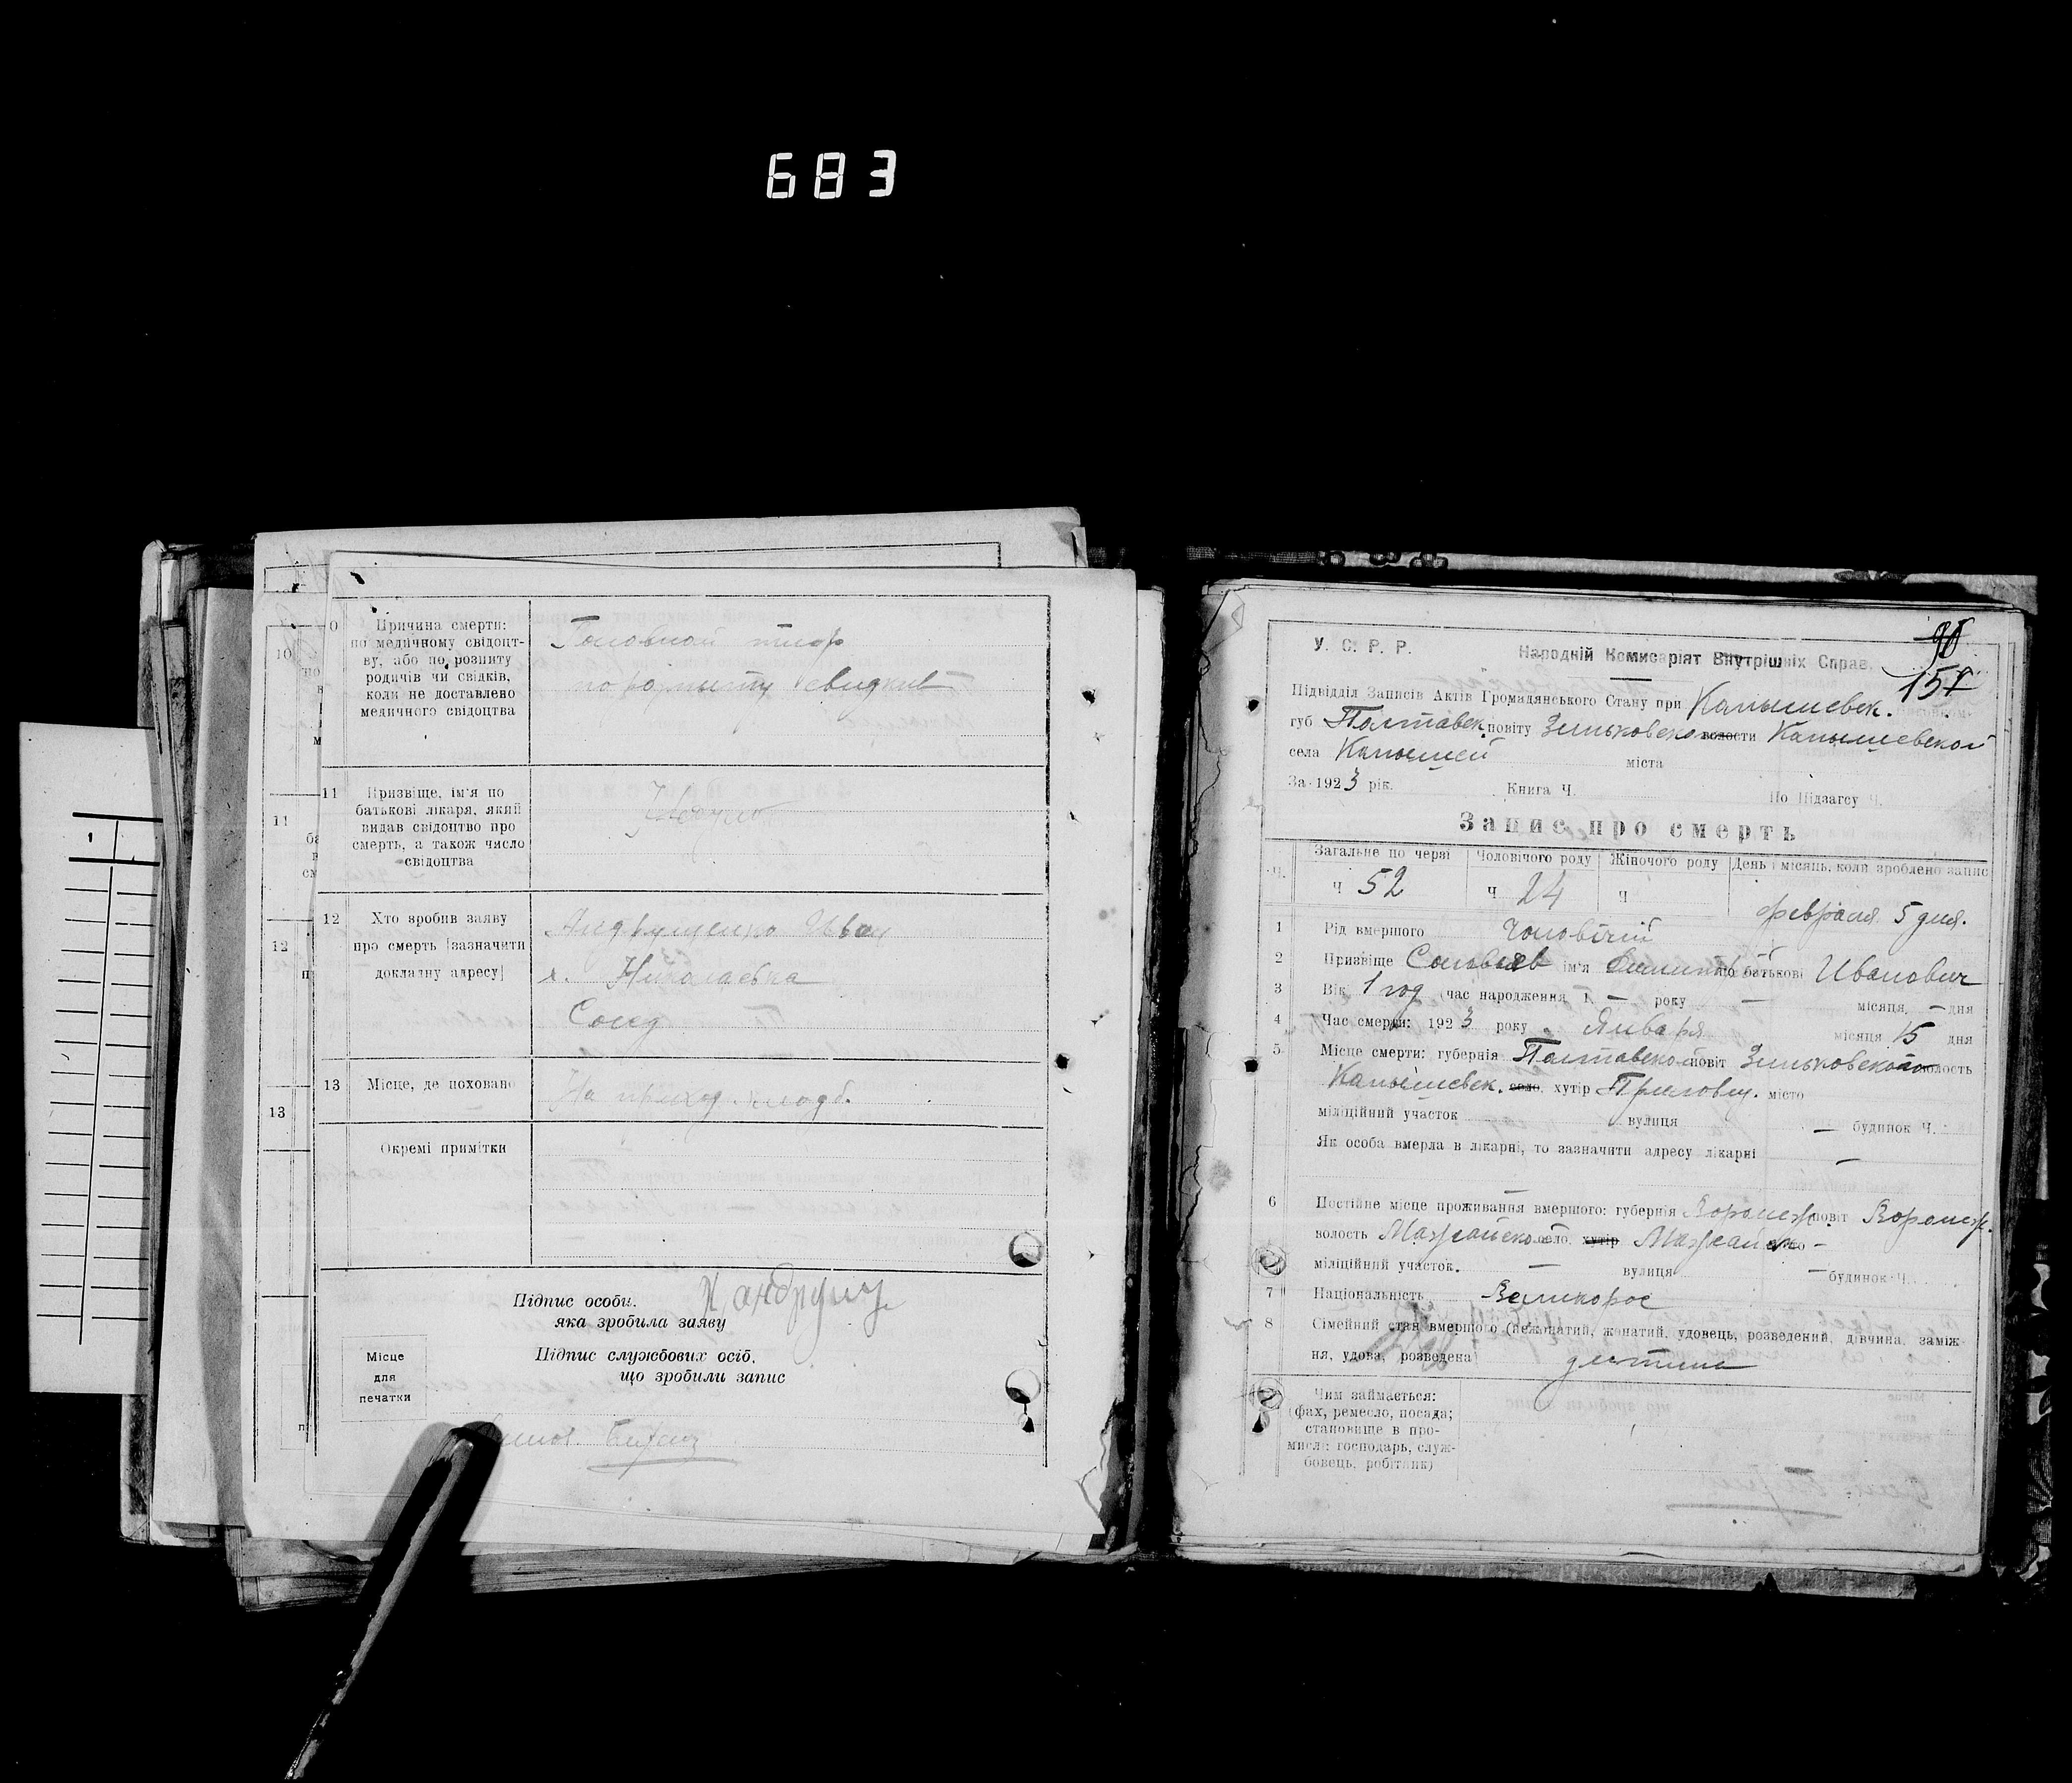 683
10
11
12
13
Причина смерти:
по медичному свідоцт-
ву, або по розпиту
родичів чи свідків,
коли не доставлено
медичного свідоцтва
Головной тиф
по розпыту свидкив
11
Призвіще, ім'я по
батькові лікаря, який
видав свідоцтво про
смерть, а також число
свідоцтва
12
Хто зробив заяву
про смерть (зазначити
докладну адресу)
Андрущенко Иван
х. Николаевка
Сосед
13
Місце, де поховано
На приход. кладб.
Окремі примітки
Підпис особи,
яка зробила заяву
И. Андрущ
Підпис службових осіб,
що зробили запис
Місце
для
печатки
У. С. Р. Р.
Народній Комисаріят Внутрішніх Справ.
90
157
Підвідділ Записів Актів Громадянського Стану при Капышевск.
губ Полтавск повіту Зиньковско волости Капышевской
села Капышей міста
За 1923 рік. Книга Ч. По Підзагсу Ч.
Запис про смерть
Ч. Загальне по черзі Чоловічого роду Жіночого роду День і місяць, коли зроблено запис
Ч 52 Ч 24 Ч февраля 5 дня.
1 Рід вмершого Чоловічий
2 Призвіще Соловьев ім'я по батькові Иванович
3 Вік 1 год (час народження 1 — року — місяця, — дня
4 Час смерти: 1923 року Января місяця 15 дня
5 Місце смерти: губернія Полтавской повіт Зиньковского волость
Капышевск. село, хутір місто
міліційний участок вулиця — будинок Ч.
Як особа вмерла в лікарні, то зазначити адресу лікарні —
6 Постійне місце проживання вмершого: губернія Воронеж повіт Воронеж.
волость Можайско село, хутір Можайско —
міліційний участок. — вулиця — будинок Ч.
7 Національність Великорос
8 Сімейний стан вмершого (нежонатий, жонатий, удовець, розведений, дівчина, заміж-
ня, удова, розведена) дитина
Чим займається:
(фах, ремесло, посада;
становище в про-
мислі: господарь, служ-
бовець, робітник)